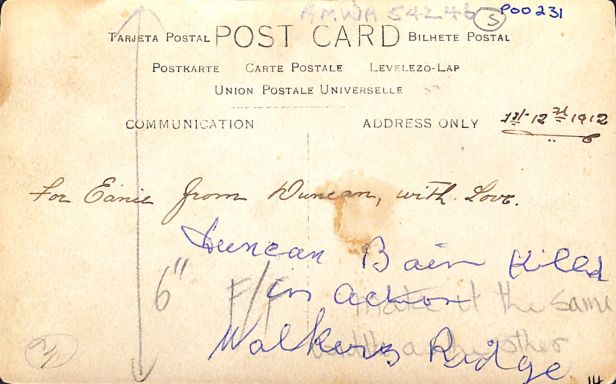 AMWA 54246 S P00231
TARJETA POSTAL POST CARD BILHETE POSTAL
POSTKARTE CARTE POSTALE LEVELEZÖ-LAP
UNION POSTALE UNIVERSELLE
COMMUNICATION ADDRESS ONLY
12 1912
For Eanie from Duncan, with Love.
Duncan Bain Killed
6" F/F in action
make it the same
Walkers Ridge
other